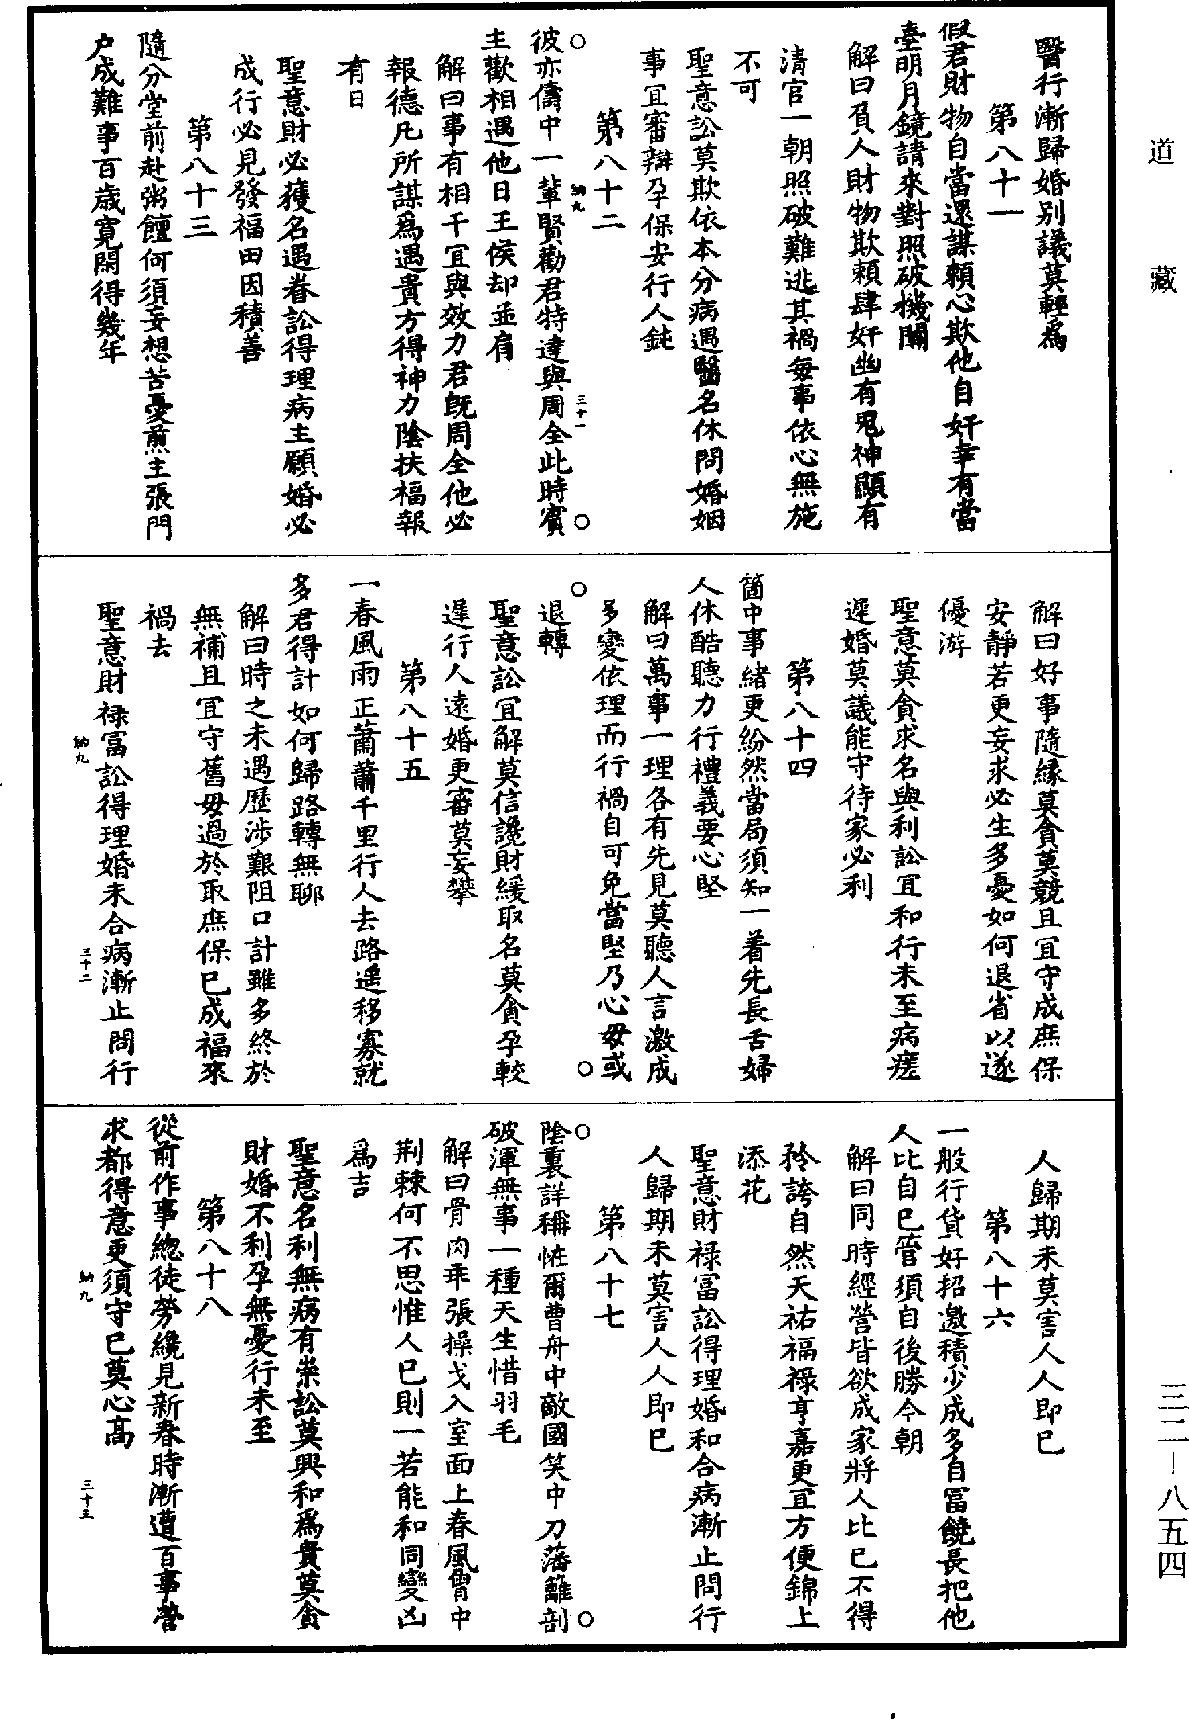 道藏
三二—八五四
醫行漸歸婚別議莫輕爲
第八十一
假君財物自當還謀賴心欺他自奸幸有當
臺明月鏡請來對照破機關
解曰負人財物欺賴肆奸幽有鬼神顯有
清官一朝照破難逃其禍每事依心無施
不可
聖意訟莫欺依本分病遇醫名休問婚姻
事宜審辯孕保安行人鈍
第八十二
納九
三十一
彼亦儔中一輩賢勸君特達與周全此時賓
主歡相遇他日王侯却並肩
解曰事有相干宜與效力君旣周全他必
報德凡所謀爲遇貴方得神力陰扶福報
有日
聖意財必獲名遇眷訟得理病主願婚必
成行必見發福田因積善
第八十三
隨分堂前赴粥饘何須妄想苦憂煎主張門
户成難事百歲寛閑得幾年
解曰好事隨緣莫貪莫競且宜守成庶保
安靜若更妄求必生多憂如何退省以遂
優游
聖意莫貪求名與利訟宜和行未至病瘥
遲婚莫議能守待家必利
第八十四
箇中事緒更紛然當局須知一着先長舌婦
人休酷聽力行禮義要心堅
解曰萬事一理各有先見莫聽人言激成
多變依理而行禍自可免當堅乃心毋或
退轉
聖意訟宜解莫信讒財緩取名莫貪孕較
遲行人遠婚更審莫妄攀
第八十五
一春風雨正蕭蕭千里行人去路遥移寡就
多君得計如何歸路轉無聊
解曰時之未遇歷涉艱阻口計雖多終於
無補且宜守舊毋過於取庶保已成福來
禍去
納九
三十二
聖意財禄冨訟得理婚未合病漸止問行
人歸期未莫害人人即已
第八十六
一般行貨好招邀積少成多自冨饒長把他
人比自已管須自後勝今朝
解曰同時經營皆欲成家將人比已不得
矜誇自然天祐福禄亨嘉更宜方便錦上
添花
聖意財禄冨訟得理婚和合病漸止問行
人歸期未莫害人人即已
第八十七
陰裏詳稱恠爾曹舟中敵國笑中刀藩籬剖
破渾無事一種天生惜羽毛
解曰骨肉乖張操戈入室面上春風胷中
荆棘何不思惟人已則一若能和同變凶
爲吉
聖意名利無病有祟訟莫興和爲貴莫貪
財婚不利孕無憂行未至
第八十八
從前作事總徒勞纔見新春時漸遭百事營
求都得意更須守已莫心高
納九
三十三